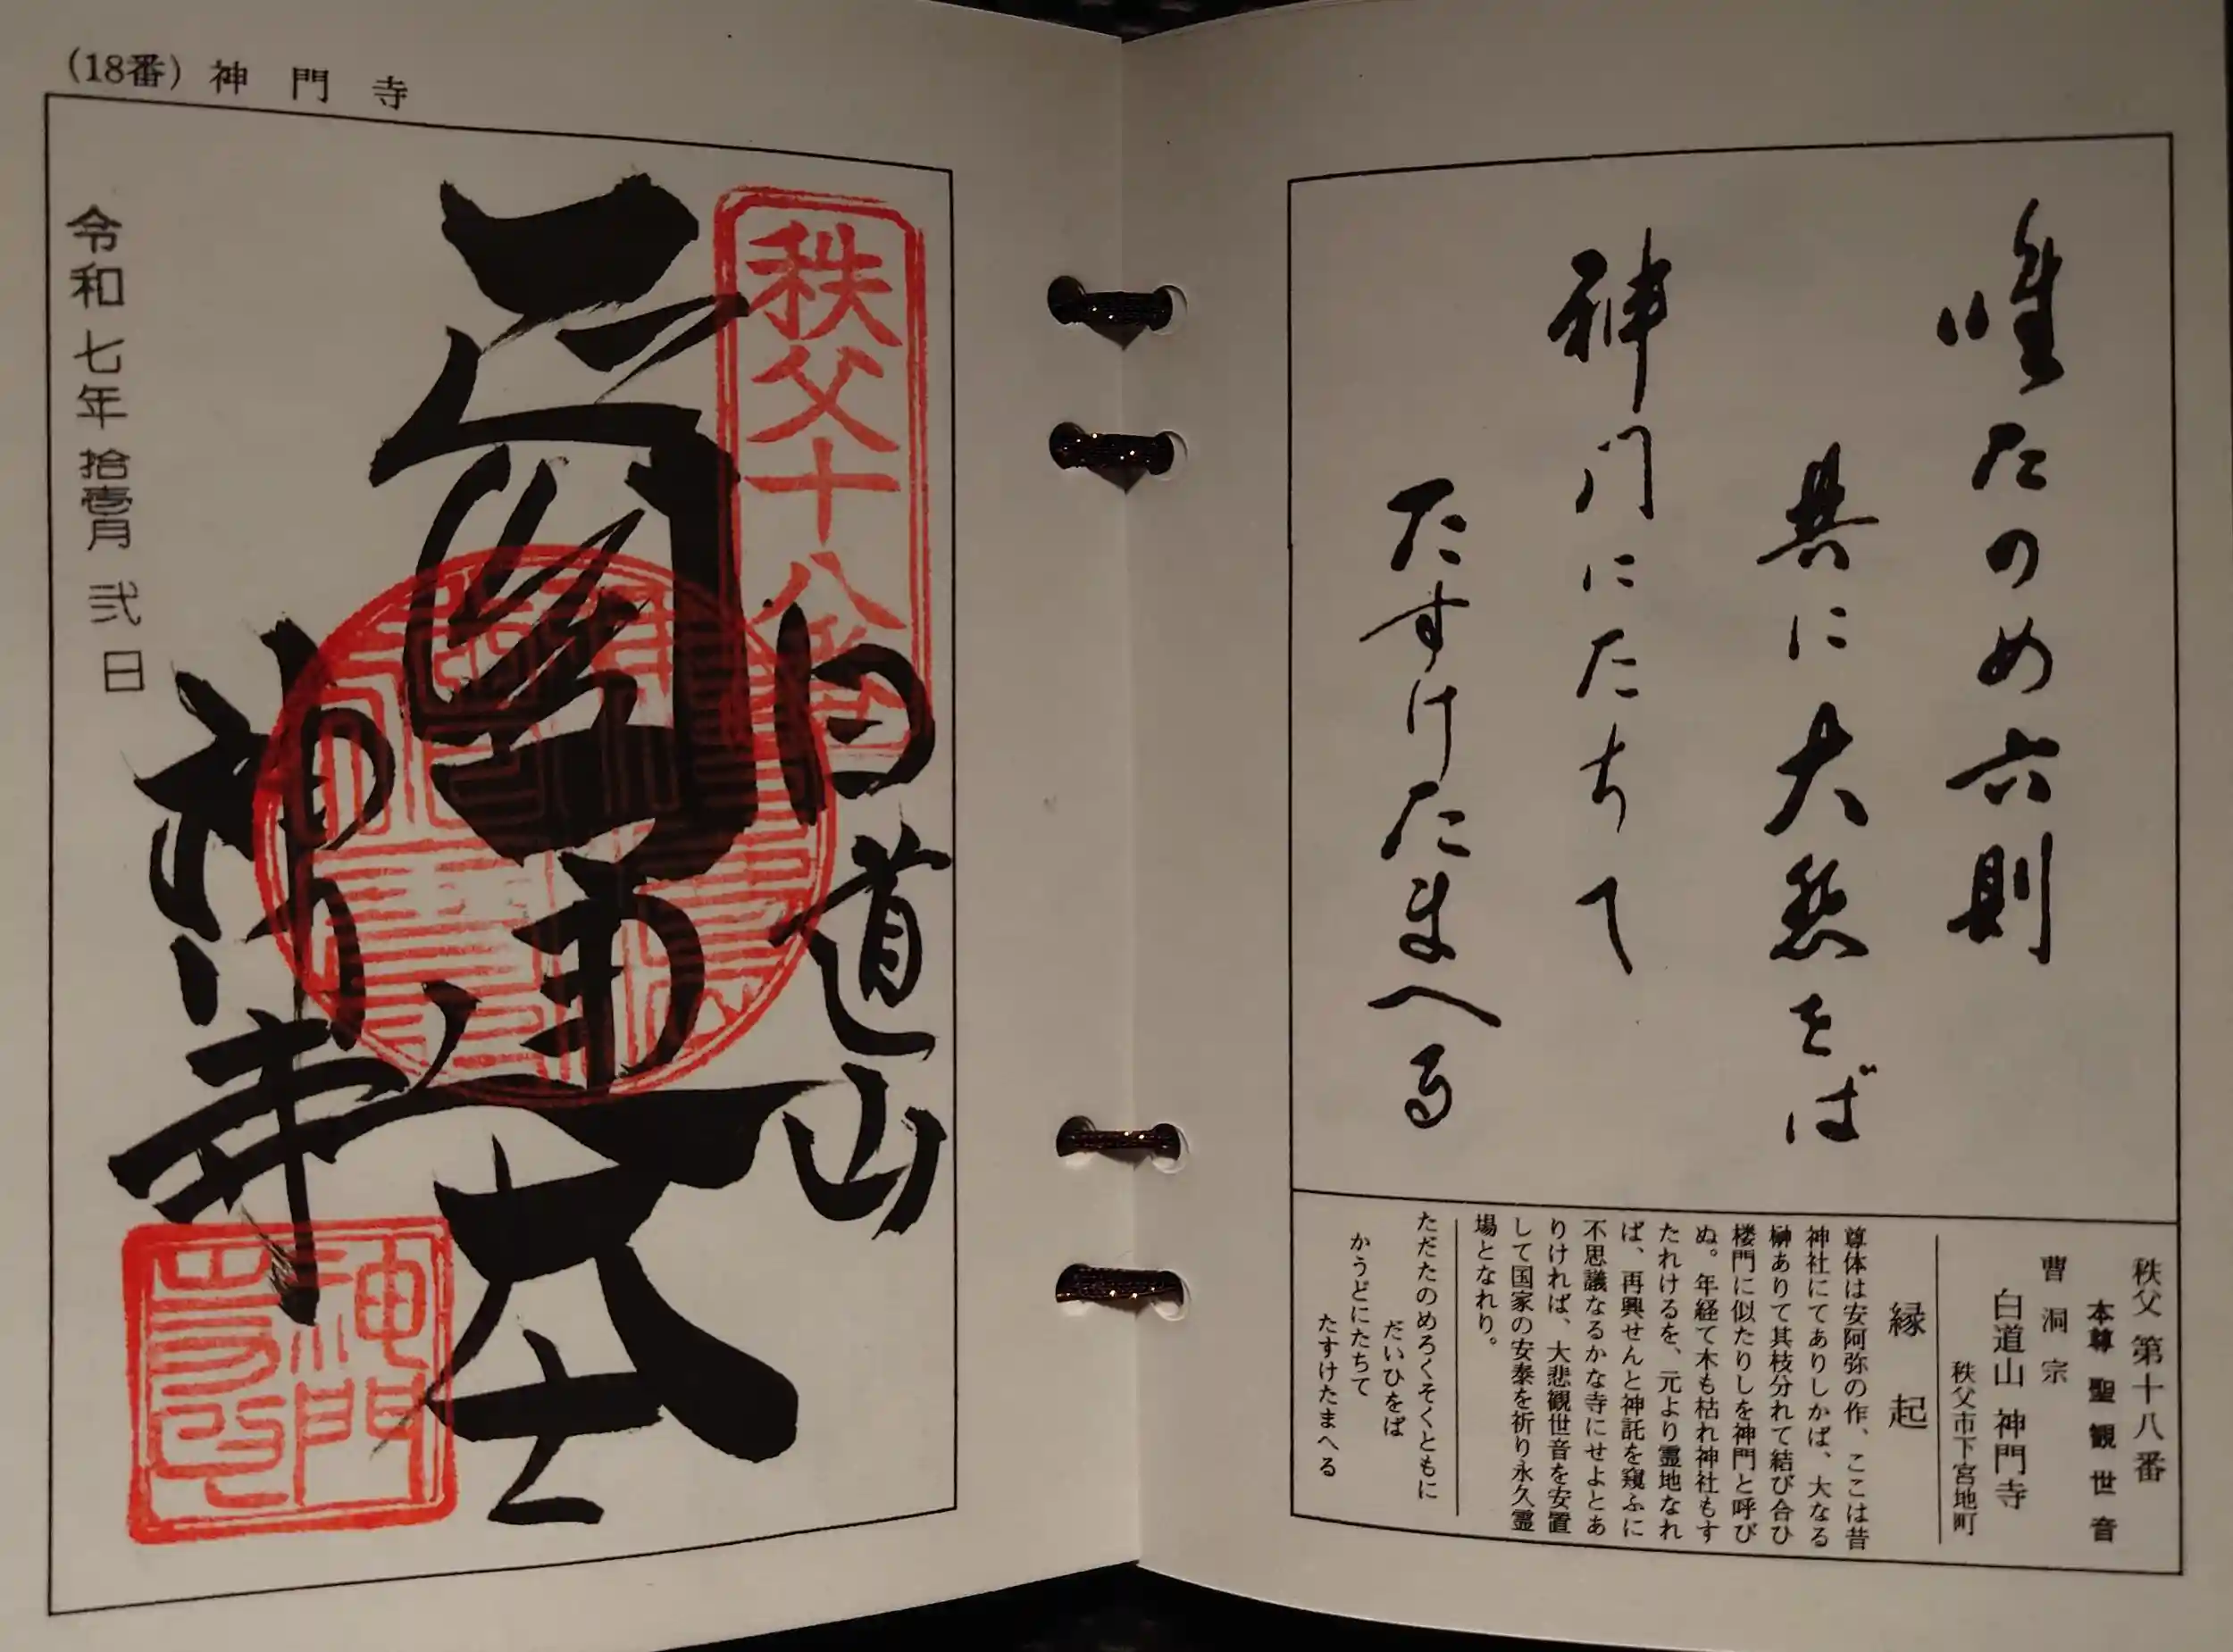 唯たのめ六則
共に大悲をば
神門にたちて
たすけたまへる
秩父 第十八番
本尊 聖観世音
曹洞宗
白道山 神門寺
秩父市下宮地町
縁起
尊体は安阿弥の作、ここは昔
神社にてありしかば、大なる
榊ありて其枝分れて結び合ひ
楼門に似たりしを神門と呼び
ぬ。年経て木も枯れ神社もす
たれけるを、元より霊地なれ
ば、再興せんと神託を窺ふに
不思議なるかな寺にせよとあ
りければ、大悲観世音を安置
して国家の安泰を祈り永久霊
場となれり。
ただたのめろくそくともに
だいひをば
かうどにたちて
たすけたまへる
(18番) 神門寺
秩父十八番
白道山
神門寺
令和七年拾壹月弐日